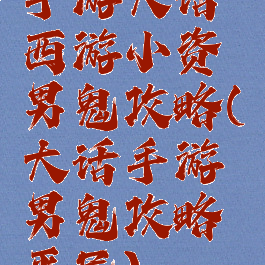 手游大话
西游小资
男鬼攻略(
大话手游
男鬼攻略